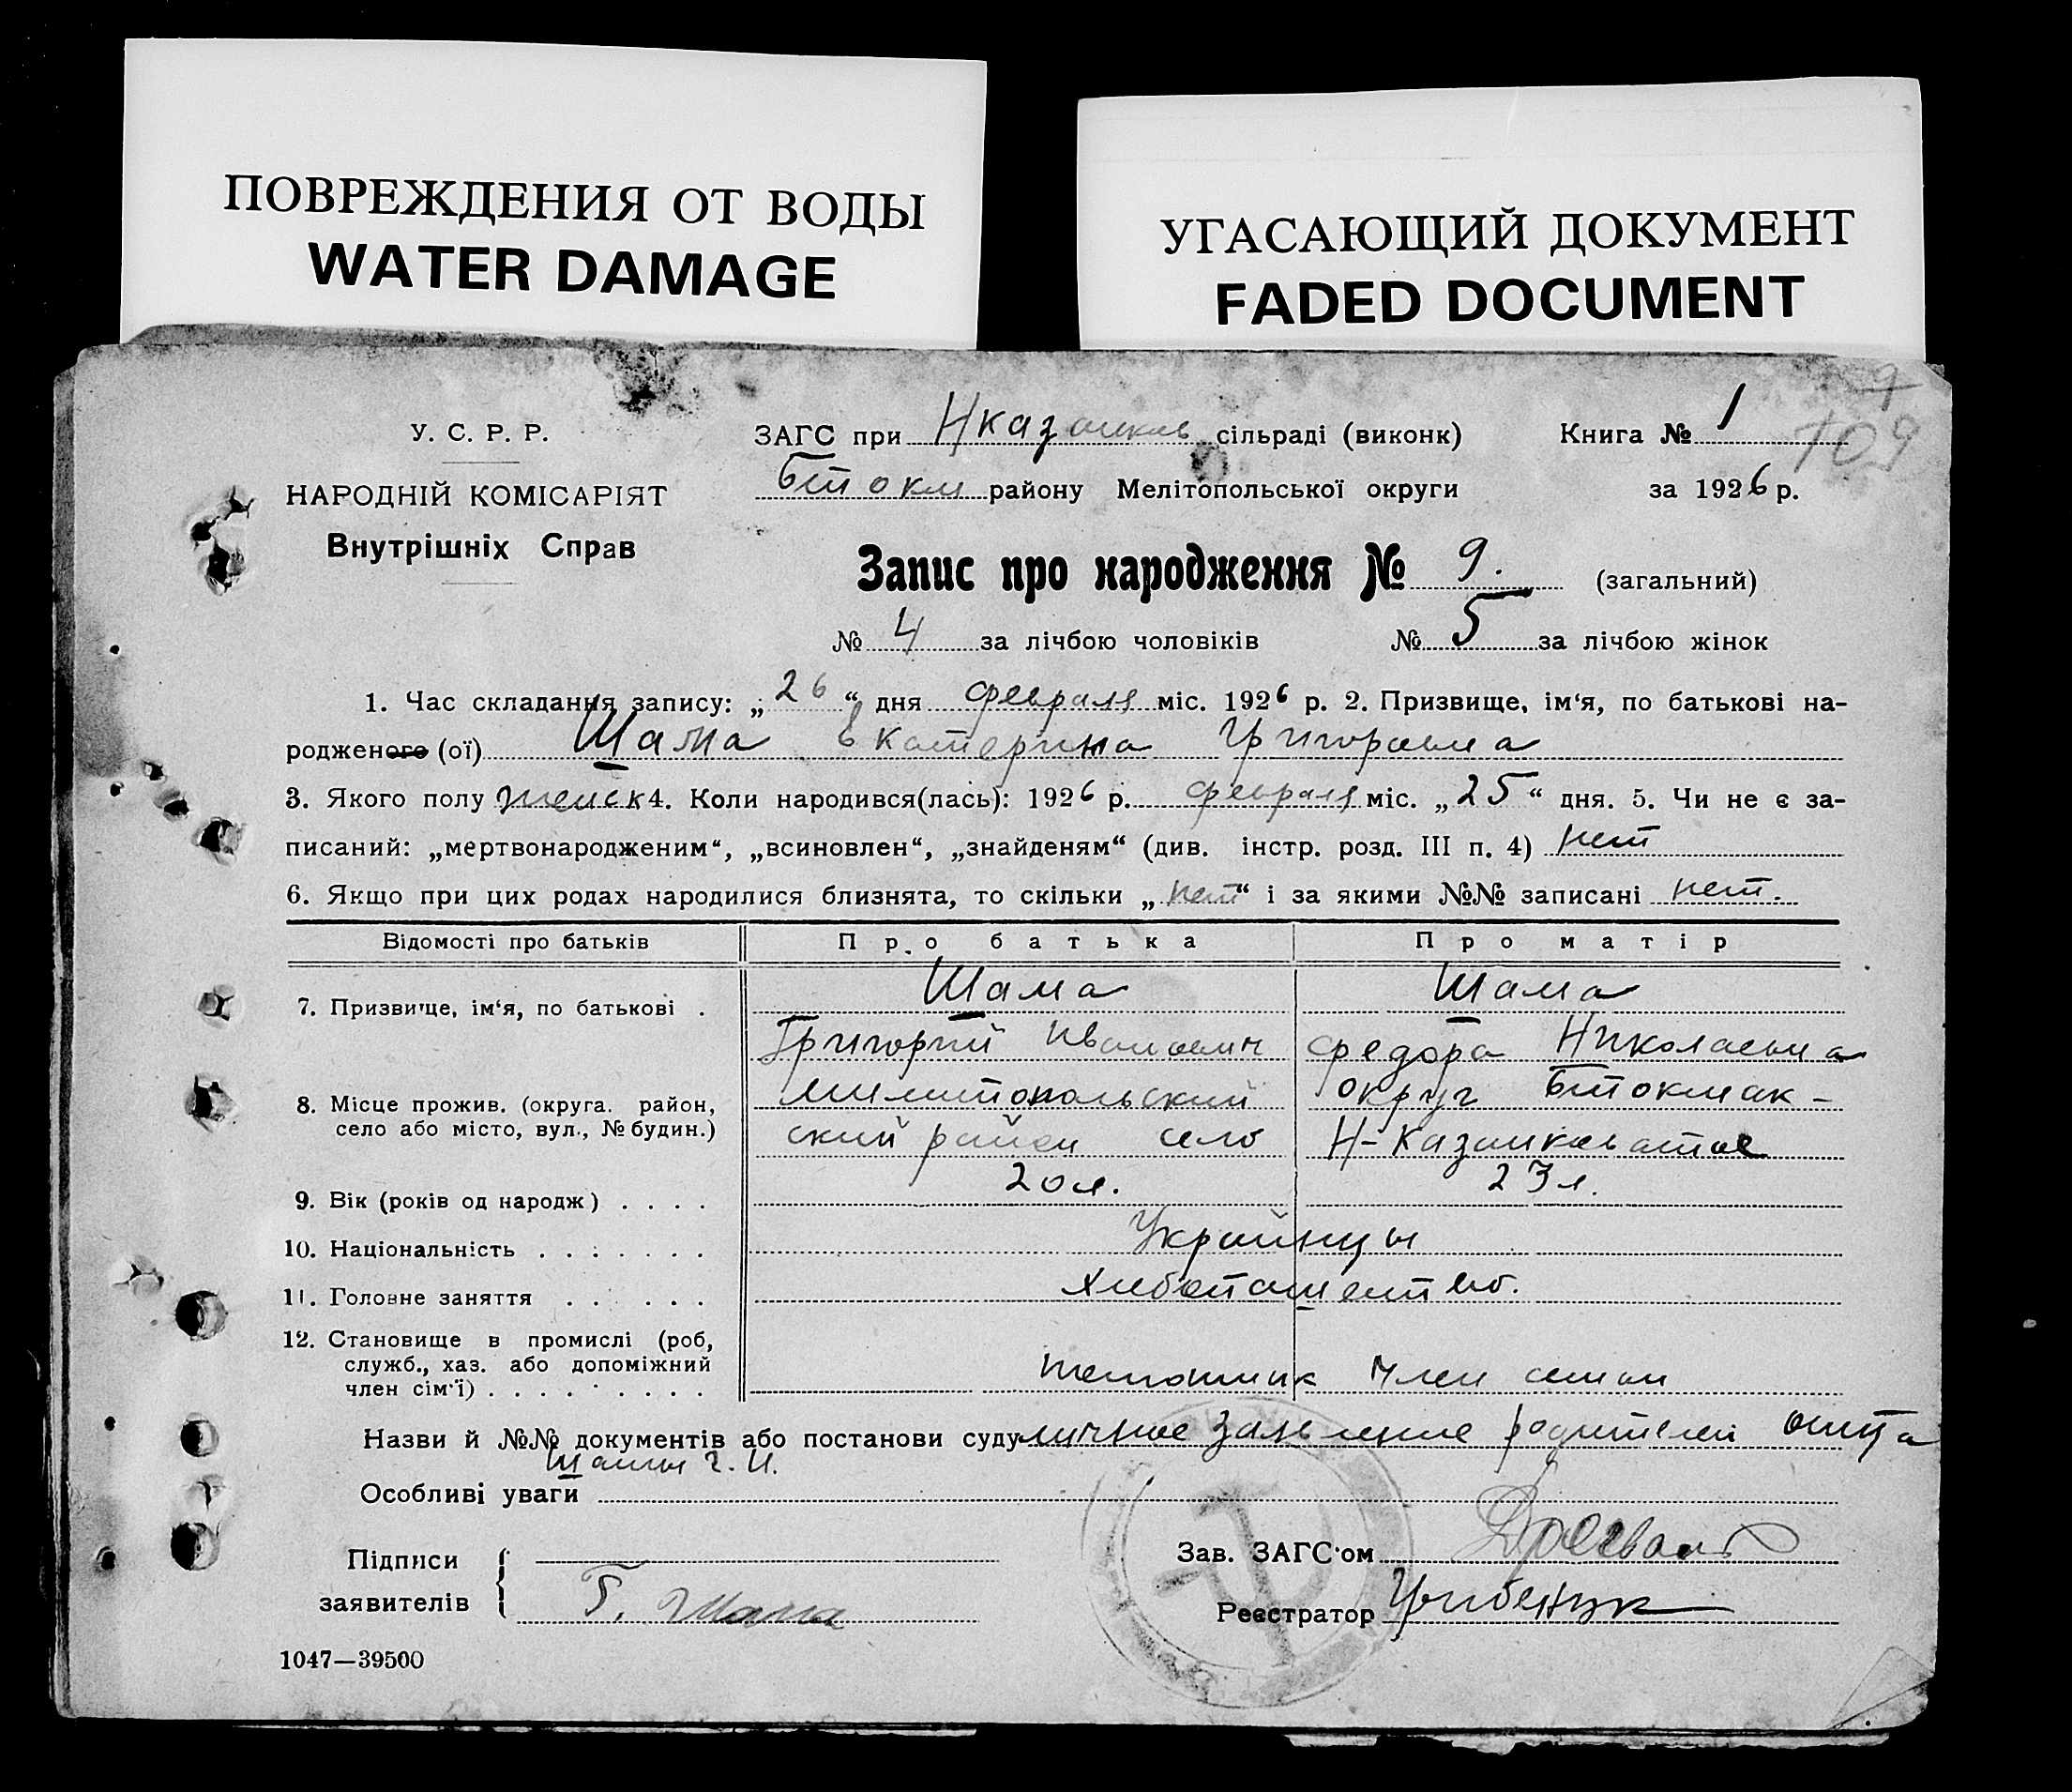 ПОВРЕЖДЕНИЯ ОТ ВОДЫ
WATER DAMAGE
УГАСАЮЩИЙ ДОКУМЕНТ
FADED DOCUMENT
9
109
У. С. Р. Р.
НАРОДНІЙ КОМІСАРІЯТ
Внутрішніх Справ
ЗАГС при Нказанков сільраді (виконк) Книга № 1
Бток району Мелітопольської округи за 1926 р.
Запис про народження № 9. (загальний)
№ 4 за лічбою чоловіків № 5 за лічбою жінок
1. Час складання запису: „ 26 “ дня февраля міс. 1926 р. 2. Призвище, ім‘я, по батькові на-
родженого (ої) Шама Екатерина Григорьевна
3. Якого полу женск 4. Коли народився(лась): 1926 р. февраля міс. „ 25 “ дня. 5. Чи не є за-
писаний: „мертвонародженим“, „всиновлен“, „знайденям“ (див. інстр. розд. III п. 4) нет
6. Якщо при цих родах народилися близнята, то скільки „ нет “ і за якими №№ записані нет.
Відомості про батьків Про батька Про матір
7. Призвище, ім‘я, по батькові . Шама Шама
Григорий Иванович Федора Николаевна
8. Місце прожив. (округа. район, село або місто, вул., № будин.) Милитопольский округ Бтокмак-
ский район село Н-Казанковатое
9. Вік (років од народж) . . . . 20 л. 23 л.
10. Національність . . . . . . . Украйнцы
11. Головне заняття . . . . . .
12. Становище в промислі (роб, служб., хаз. або допоміжний член сім‘ї) . . . . . . . . . член семи
Назви й №№ документів або постанови суду личное заявление родителей отца
Шамы Г. И.
Особливі уваги
Підписи
заявителів Г. Шама
Зав. ЗАГС‘ом
Реєстратор
1047—39500